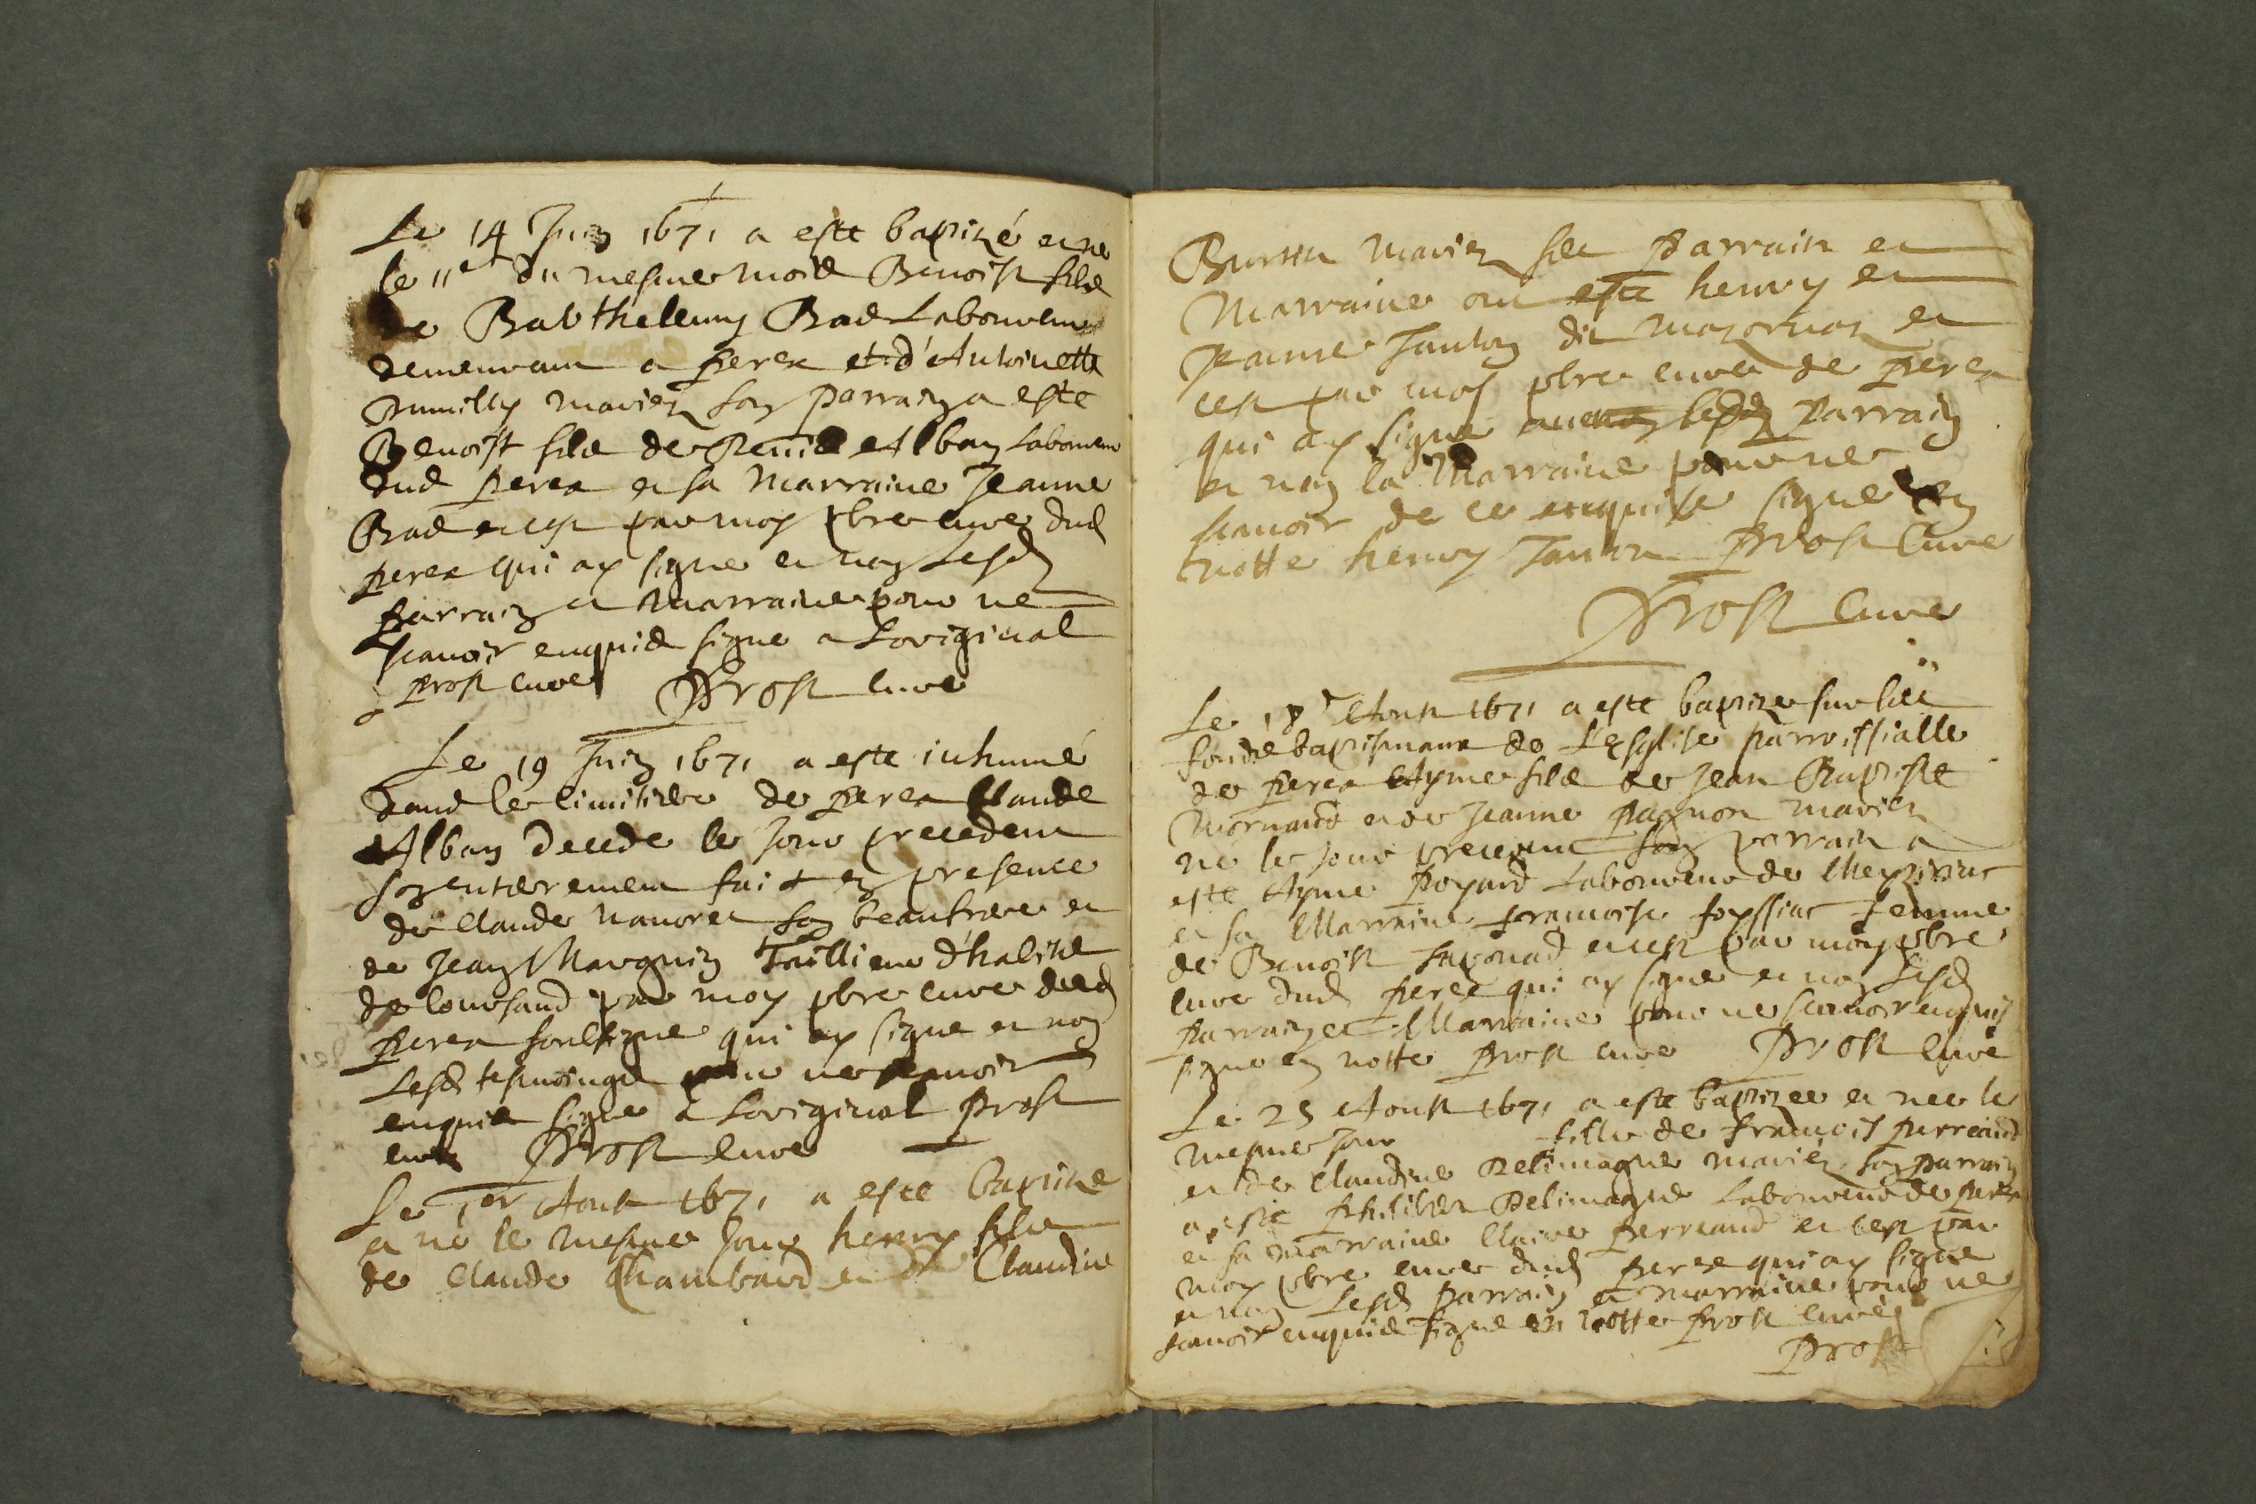 Le 14 Juin 1671 a este baptizé et ne
le 11e du mesme mois Benoist fils
de Barthelemy Bad Laboureur
demeurant a perex et d'Antoinette
rumilly mariez son parrain a este
Benoist fils de Denis Alban Laboureur
dud perex et sa Marraine Jeanne
Bad et cest par moy pbre cure dud
perex qui ay signe et non Lesd
parrain et Marraine pour ne
scavoir enquis signe a Loriginal
prost cure Prost cure
Le 19 Juin 1671 a este inhumé
dans le cimitiere de perex Claude
Alban decede le jour precedent
son enterrement fait en presence
de Claude navoret son beaufrere et
de Jean Marguin Taillieur d'habits
de Coursand par moy pbre cure dud
perex soubsigne qui ay signe et non
Lesd tesmoings pour ne scavoir
enquis signe a Loriginal Prost
cure Prost cure
Le 1er Aoust 1671 a este baptize
et né le mesme jour henry fils
de Claude Chambard et de Claudine
mariez ses Parrain et
Marraine ont este henry et
Jeanne Janton dit et
cest par moy pbre cure de perex
qui ay signe avec led Parrain
et non la Marraine pour ne
scavoir de ce enquise signe en
notte henry Janton Prost Cure
Prost cure
Le 18 Aoust 1671 a este baptize sur les
fonds baptismaux de L'Esglise parroissialle
de perex Ayme fils de Jean Baptiste
Mornand et de Jeanne pagnon mariez
né le jour precedent son parrain a
este Ayme poyard Laboureur de
et sa Marraine francoise foyssiat femme
de Benoist et cest par moy pbre
cure dud perex qui ay signe et non Lesd
parrain et Marraine pour ne scavoir enquis
signe en notte prost cure Prost cure
Le 25 Aoust 1671 a este baptizee et nee le
mesme jour fille de francois perreand
et de Claudine Delimagne mariez son parrain
a este philibert Delimagne Laboureur de perex
et sa marraine Claire perreand et cest par
moy pbre cure dud perex qui ay signe
et non Lesd Parrain et marraine pour ne
scavoir enquis signe en notte prost cure
Prost